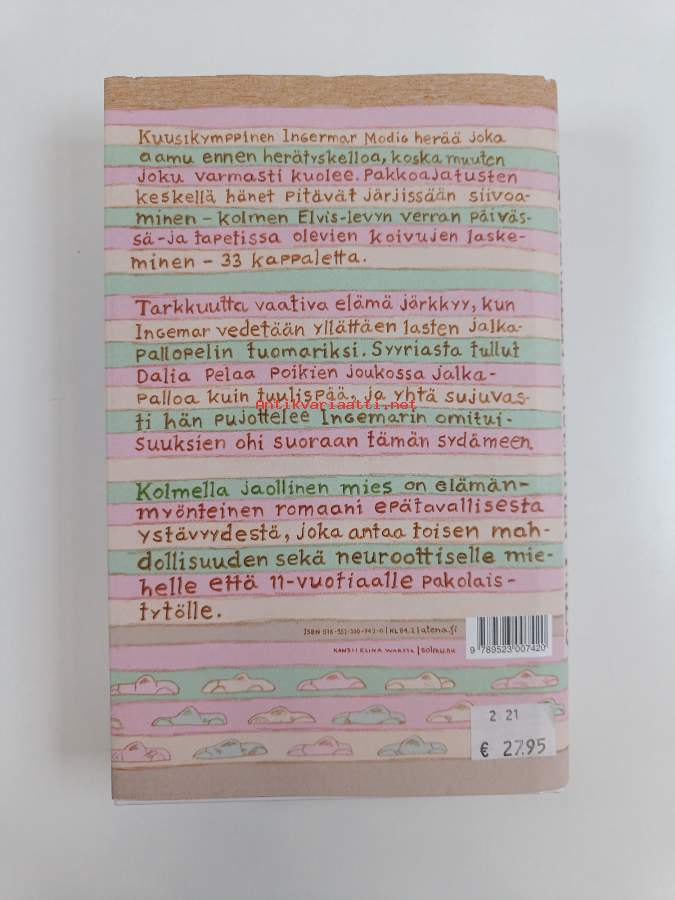 Kuusikymppinen Ingermar Modig herää joka
aamu ennen herätyskelloa, koska muuten
joku varmasti kuolee. Pakkoajatusten
keskellä hänet pitävät järjissään siivoa-
minen – kolmen Elvis-levyn verran päiväs-
sä – ja tapetissa olevien koivujen laske-
minen – 33 kappaletta.
Tarkkuutta vaativa elämä järkkyy, kun
Ingemar vedetään yllättäen lasten jalka-
pallopelin tuomariksi. Syyriasta tullut
Dalia pelaa poikien joukossa jalka-
palloa kuin tuulispää, ja yhtä sujuvas-
Antikvariaatti.net
ti hän pujottelee Ingemarin omitui-
suuksien ohi suoraan tämän sydämeen.
Kolmella jaollinen mies on elämän-
myönteinen romaani epätavallisesta
ystävyydestä, joka antaa toisen mah-
dollisuuden sekä neuroottiselle mie-
helle että 11-vuotiaalle pakolais-
tytölle.
ISBN 978-952-300-742-0 | KL 84.2 | atena.fi
KANSI ELINA WARSTA |
9 789523 007420
2 21
€ 27.95